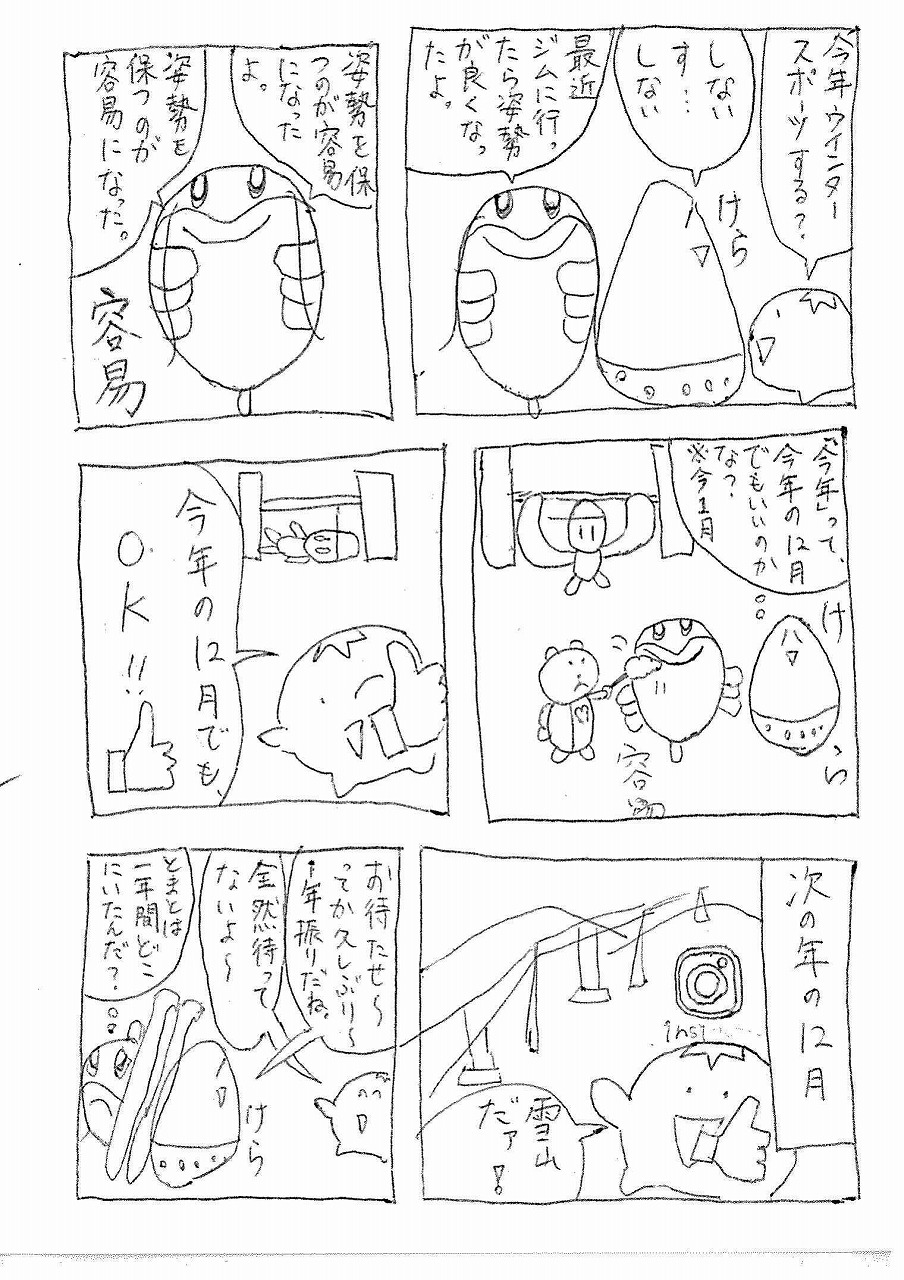 今年ウインター
スポーツする?
しない
す…
しない
けら
最近
ジムに行っ
たら姿勢
が良くなっ
たよ。
姿勢を保
つのが容易
になった
よ。
姿勢を
保つのが
容易になった。
容易
「今年」って、
今年の12月
でもいいのか
な?
※今1月
けら
容易
今年の12月でも、
O.K!!
次の年の12月
Inst
雪山
だァ!
お待たせ〜
ってか久しぶり〜
1年振りだね。
全然待って
ないよ〜
とまとは
一年間どこ
にいたんだ?
けら